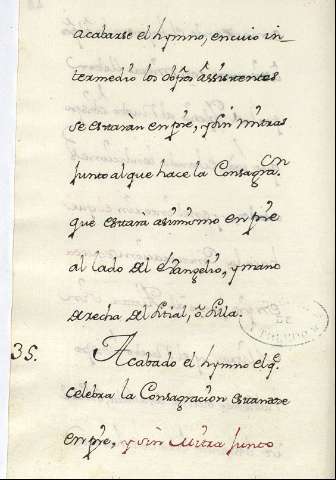 acabarse el hymno, en cuio in-
termedio los obpos assistentes
se estaràn en pie, y sin mitras
junto al que hace la Consagracn.
que estarà asimismo en pie
al lado del Evangelio, y mano
derecha del sitial, ò silla.
35. Acabado el hymno el q.
celebra la Consagracion estando
en pie, y sin Mitra junto